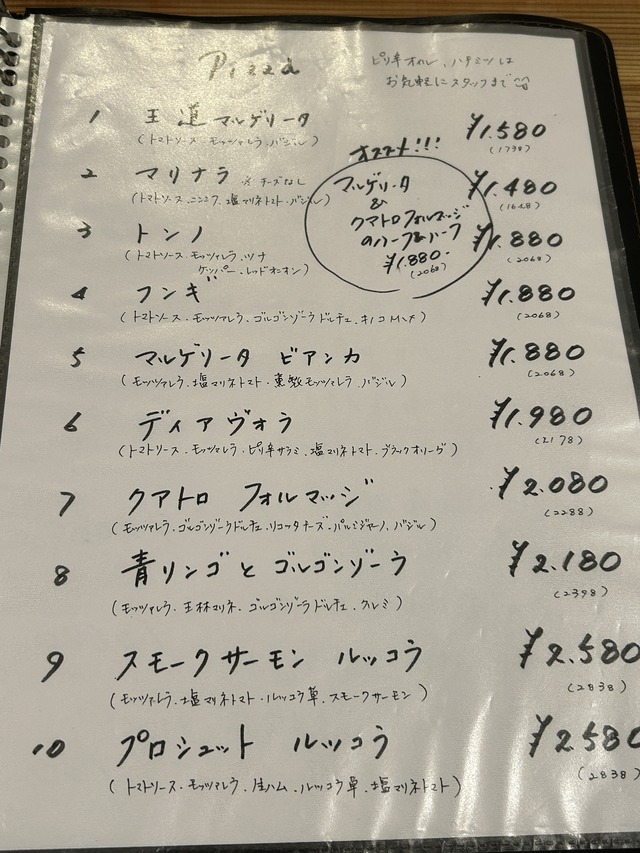 Pizza
ピリ辛オイル、ハチミツは
お気軽にスタッフまで
1 王道マルゲリータ ¥1.580
(トマトソース・モッツァレラ・バジル) (1738)
2 マリナラ ※チーズなし ¥1.480
(トマトソース・ニンニク・塩マリネトマト・バジル) (1628)
オススメ!!!
マルゲリータ
&
クアトロフォルマッジ
のハーフ&ハーフ
¥1.880-
(2068)
3 トンノ ¥1.880
(トマトソース・モッツァレラ・ツナ (2068)
ケッパー・レッドオニオン)
4 フンギ ¥1.880
(トマトソース・モッツァレラ・ゴルゴンゾーラドルチェ・キノコMix) (2068)
5 マルゲリータ ビアンカ ¥1.880
(モッツァレラ・塩マリネトマト・燻製モッツァレラ・バジル) (2068)
6 ディアヴォラ ¥1.980
(トマトソース・モッツァレラ・ピリ辛サラミ・塩マリネトマト・ブラックオリーヴ) (2178)
7 クアトロ フォルマッジ ¥2.080
(モッツァレラ・ゴルゴンゾーラドルチェ・リコッタチーズ・パルミジャーノ・バジル) (2288)
8 青リンゴと ゴルゴンゾーラ ¥2.180
(モッツァレラ・王林マリネ・ゴルゴンゾーラドルチェ・クルミ) (2398)
9 スモークサーモン ルッコラ ¥2.580
(モッツァレラ・塩マリネトマト・ルッコラ草・スモークサーモン) (2838)
10 プロシュット ルッコラ ¥2.580
(トマトソース・モッツァレラ・生ハム・ルッコラ草・塩マリネトマト) (2838)